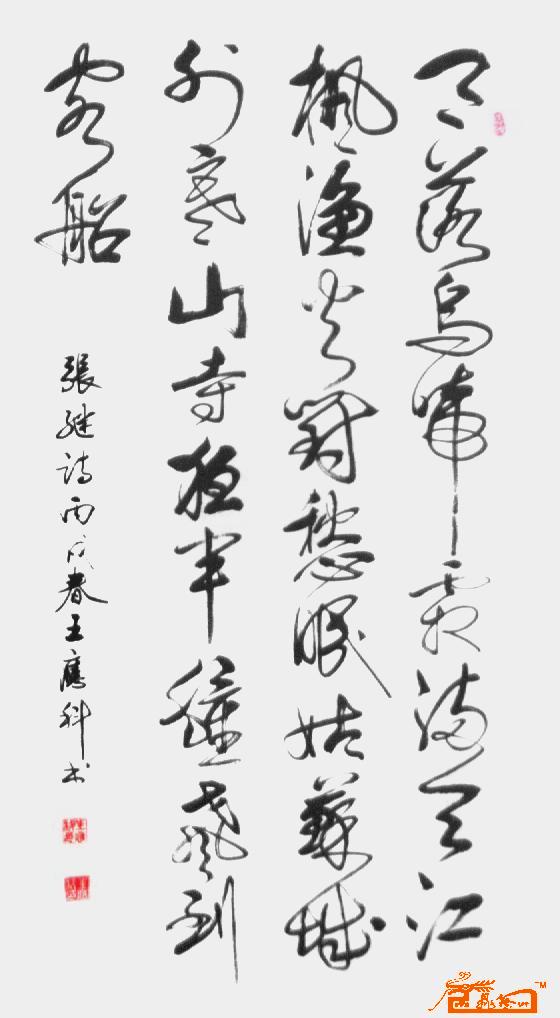 月落烏啼霜滿天江
楓漁火對愁眠姑蘇城
外寒山寺夜半鐘聲到
客船
張继诗丙戌春王應科书